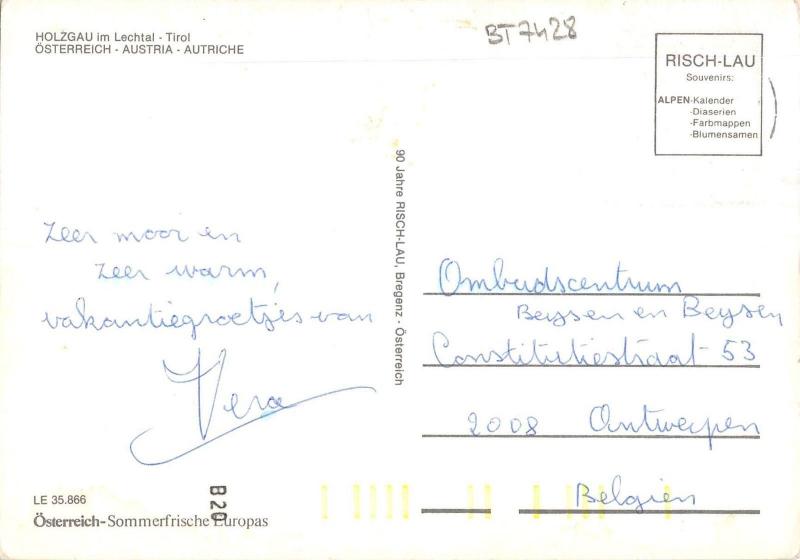 HOLZGAU im Lechtal - Tirol
ÖSTERREICH - AUSTRIA - AUTRICHE
BT7428
RISCH-LAU
Souvenirs:
ALPEN-Kalender
-Diaserien
-Farbmappen
-Blumensamen
90 Jahre RISCH-LAU, Bregenz - Österreich
Zeer mooi en
zeer warm,
vakantiegroetjes van
Vera
Ombudscentrum
Beysen en Beysen
Constitutiestraat 53
2008 Antwerpen
Belgien
LE 35.866
B 20
Österreich-Sommerfrische Europas